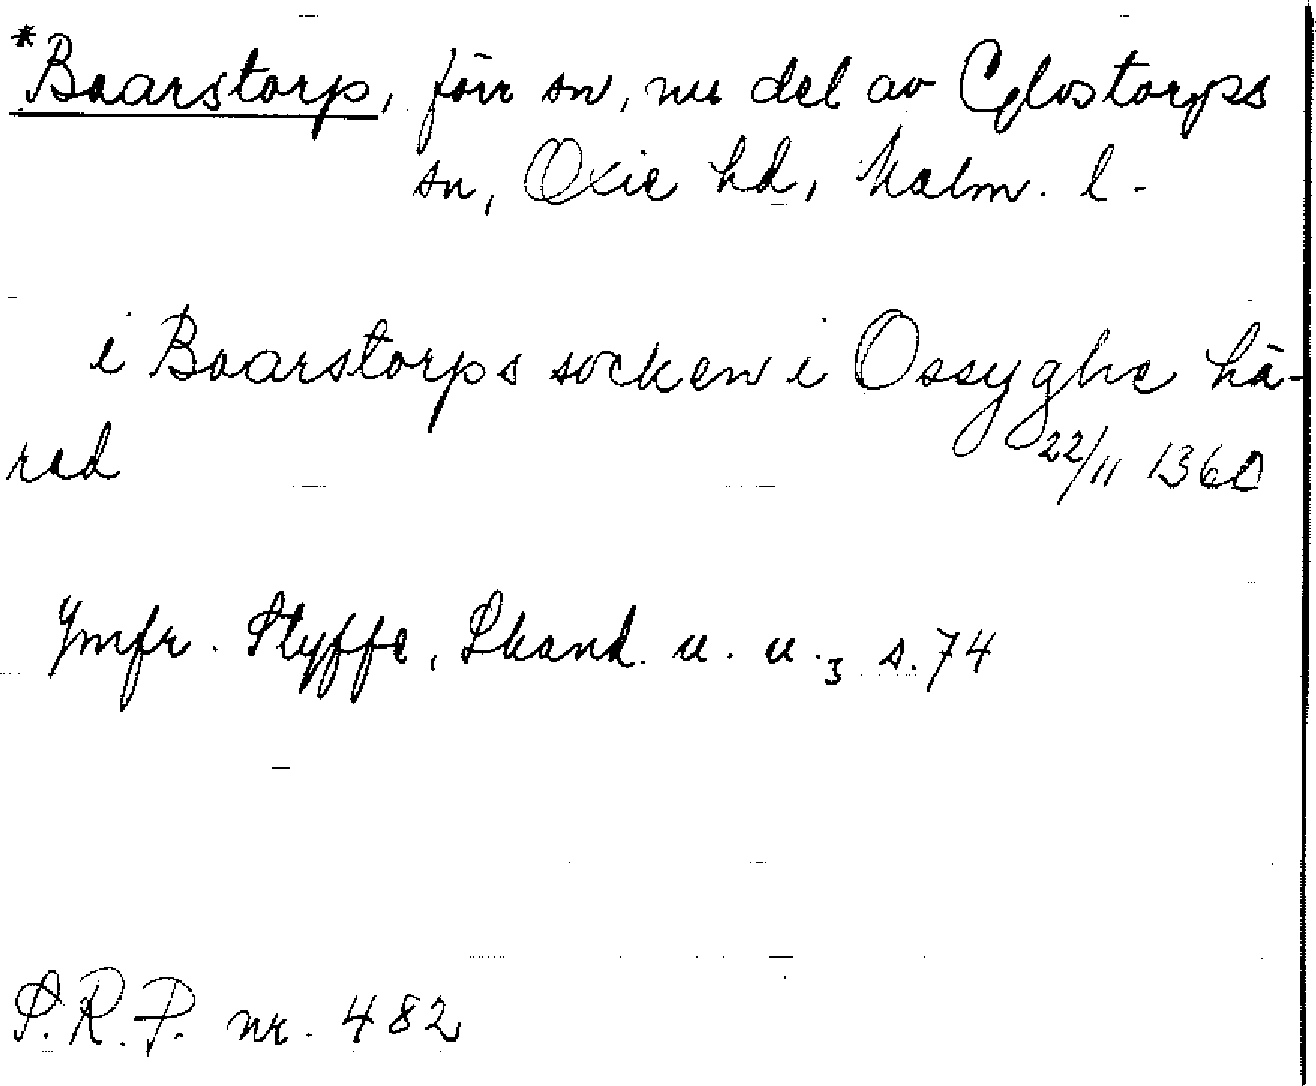 *Boarstorp, förr sn, nu del av Glostorps
sn, Oxie hd, Malm. l.
i Boarstorps socken i Ossyghe hä-
rad
22/11 1360
Jmfr. Styffe, Skand. u. u.3 s. 74
S.R.P. nr. 482